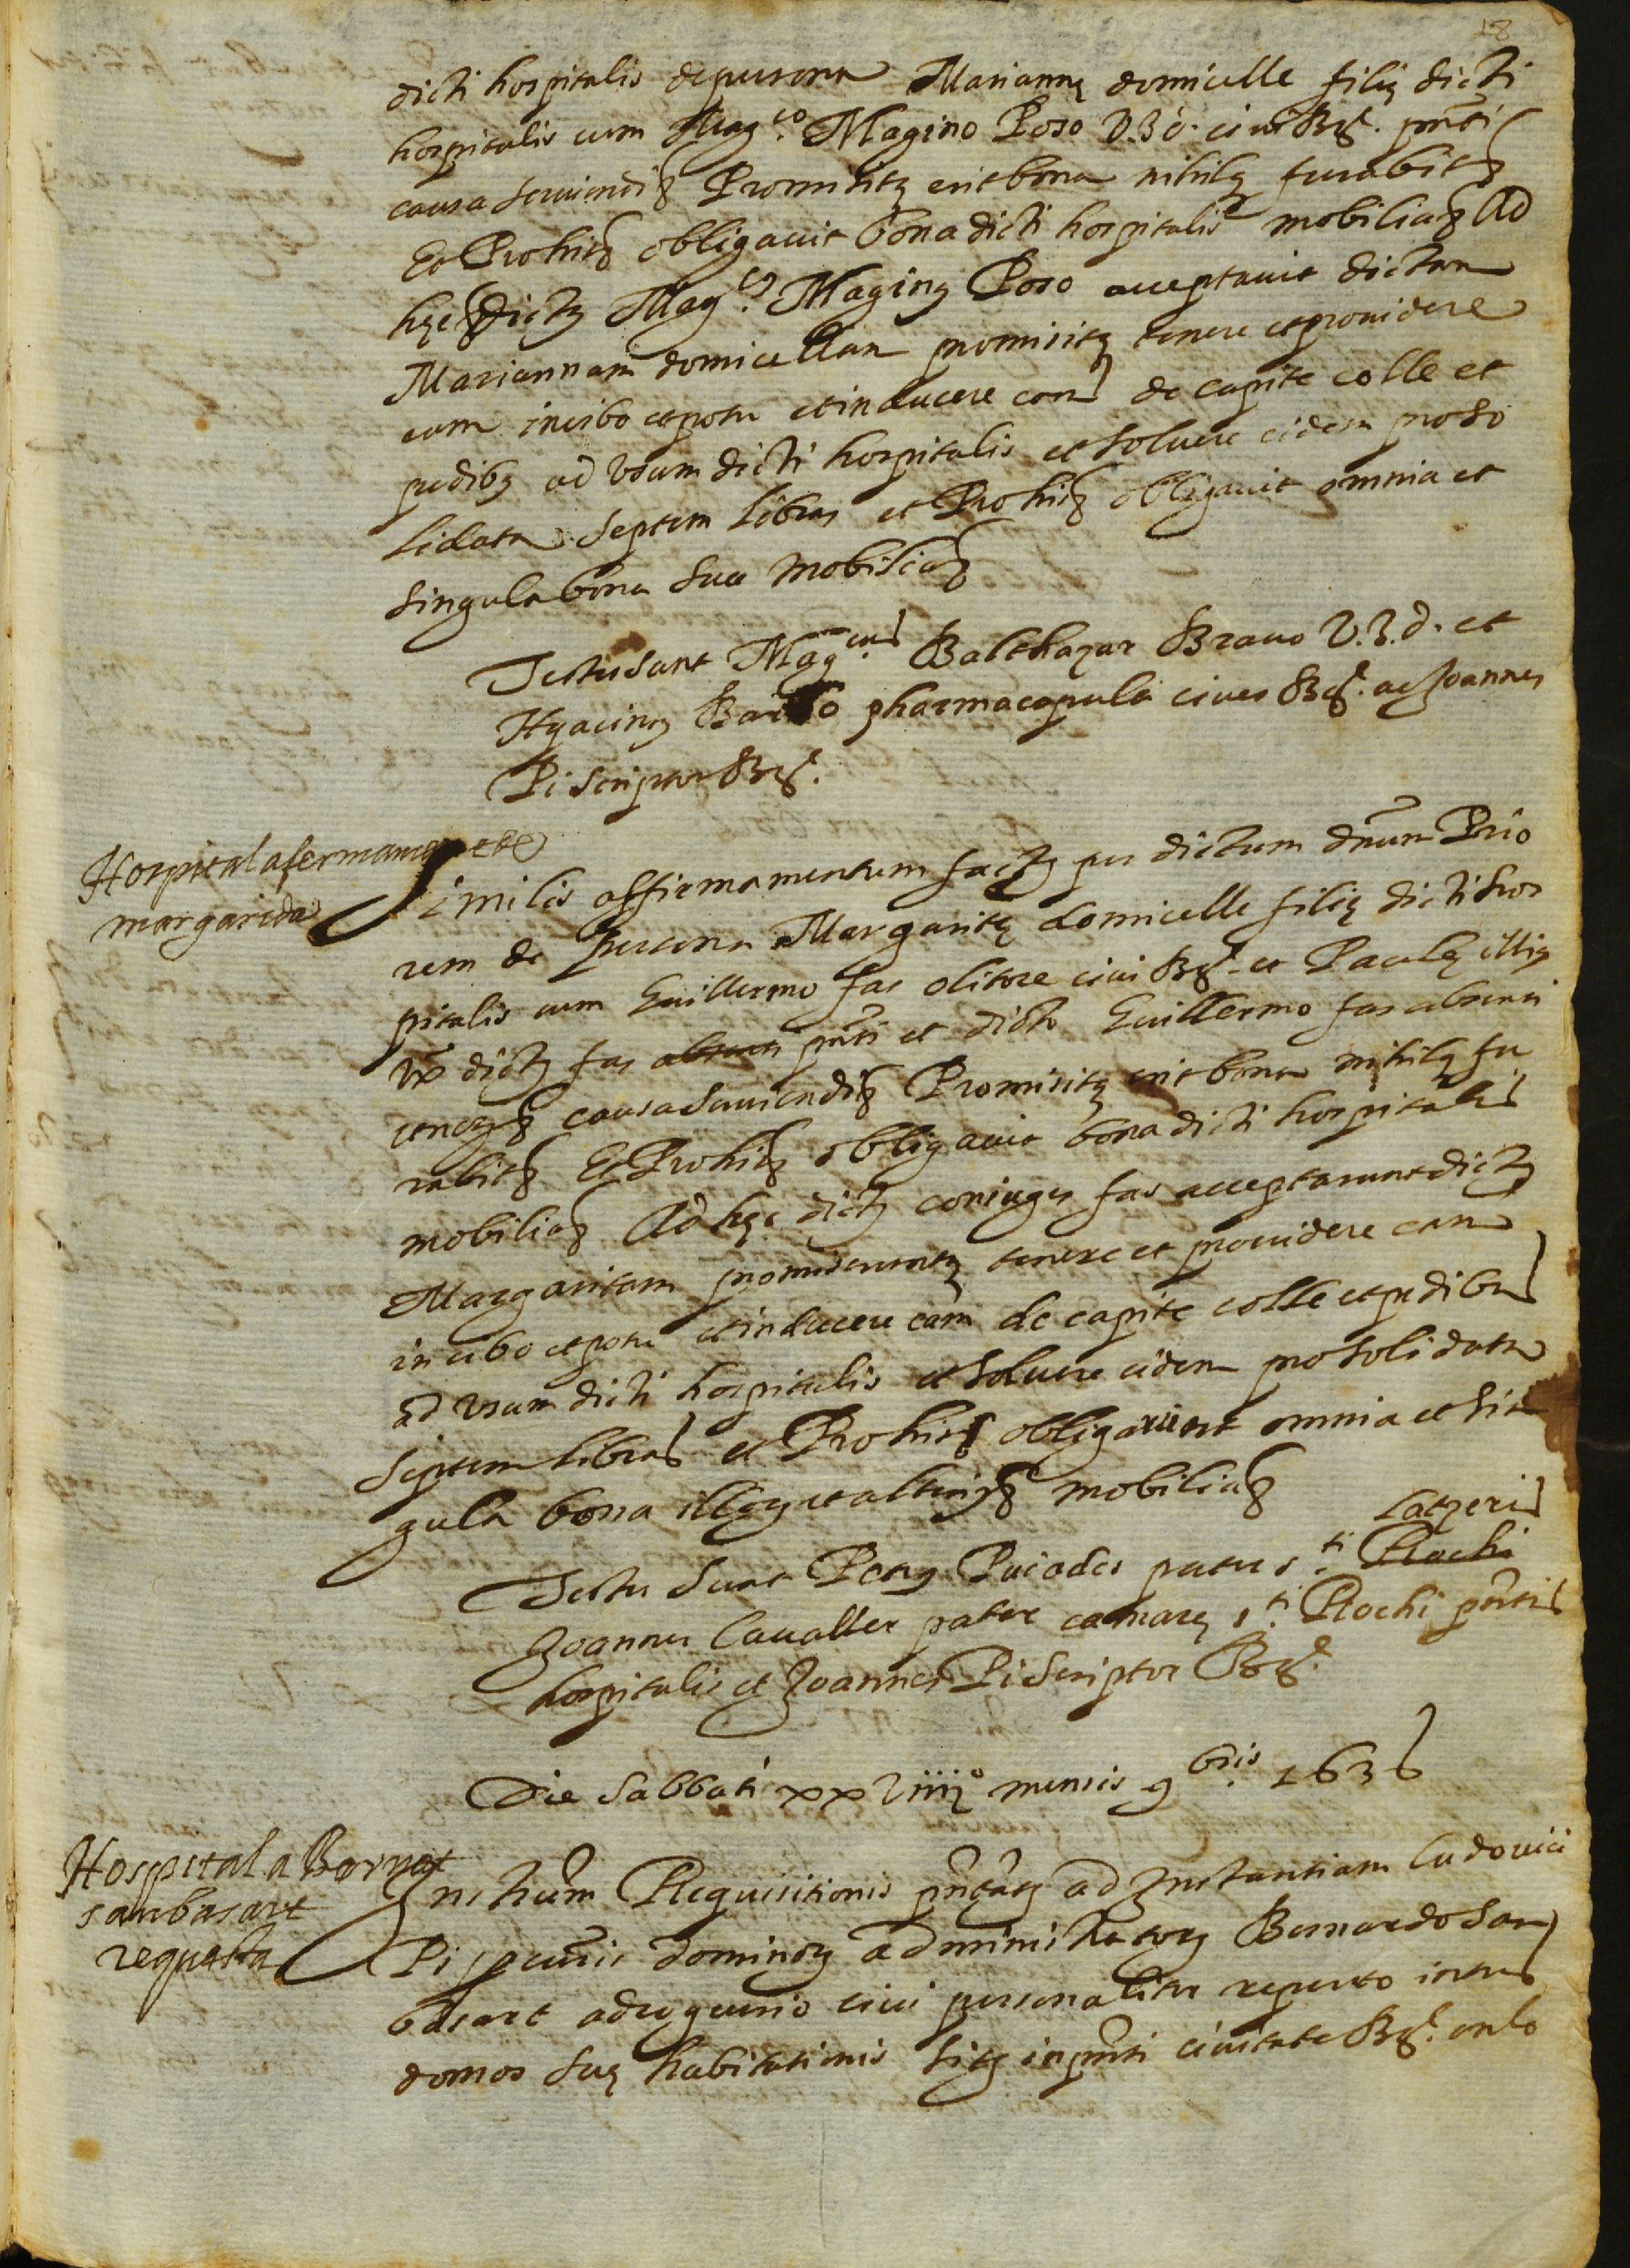 18
dicti hospitalis de persona Mariannę domicelle filię dicti
hospitalis cum Mag.co Magino Poso V.J.d. cive Bar. pnti
causa serviendi& Promisitq erit bona nihilq furabit&
Et Pro his& obligavit bona dicti hospitalis mobilia& Ad
hęc& dictq Mag.cq Maginq Poso acceptavit dictam
Mariannam domicellam promisitq tenere et providere
eam in cibo et potu et inducere eam de capite colle et
pedibq ad usum dicti hospitalis et solvere eidem pro so
lidata septem libras et Pro his& obligavit omnia et
singula bona sua mobilia&
Testes sunt Mag.cus Balthazar Bravo V.J.d. et
Hyacinq Bar o pharmacopula cives Bar. ac Joannes
Pi Scriptor Bar.
Hospital afermament de
margarida
Similis affirmamentum factq per dictum dnum Prio
rem de persona Margaritę domicelle filię dicti hos
pitalis cum Guillermo fas olitore civi Bar. et Paulę illiq
ux dictq fas absenti pnti et dicto Guillermo fas absenti
causa serviendi& Promisitq erit bona nihilq fu
rabit& Et Pro his& obligavit bona dicti hospitalis
mobilia& Ad hęc dictq coniuges fas acceptarunt dictq
Margaritam promiseruntq tenere et providere eam
in cibo et potu et inducere eam de capite colle et pedibus
ad usum dicti hospitalis et solvere eidem pro solidata
septem libras et Pro his& obligarunt omnia et sin
gula bona illorq et altiusq& mobilia&
Latzeri
Testes sunt Petrq Puiades pater s.ti Rochi
Joannes Cavaller pater camarę s.ti Rochi pntis
hospitalis et Joannes Pi Scriptor Bar.
Die Sabbati xxviiij° mensis 9bris. 1636
Hospital a Bernat
sanbasart
requesta
Instrum Requisitionis pntatq ad Instantiam Ludovici
Pi dominorq administratorq Bernardo San
basart adroguerio civi personaliter reperto intus
domos suę habitationis sitq in pnti civitate Bar. en lo